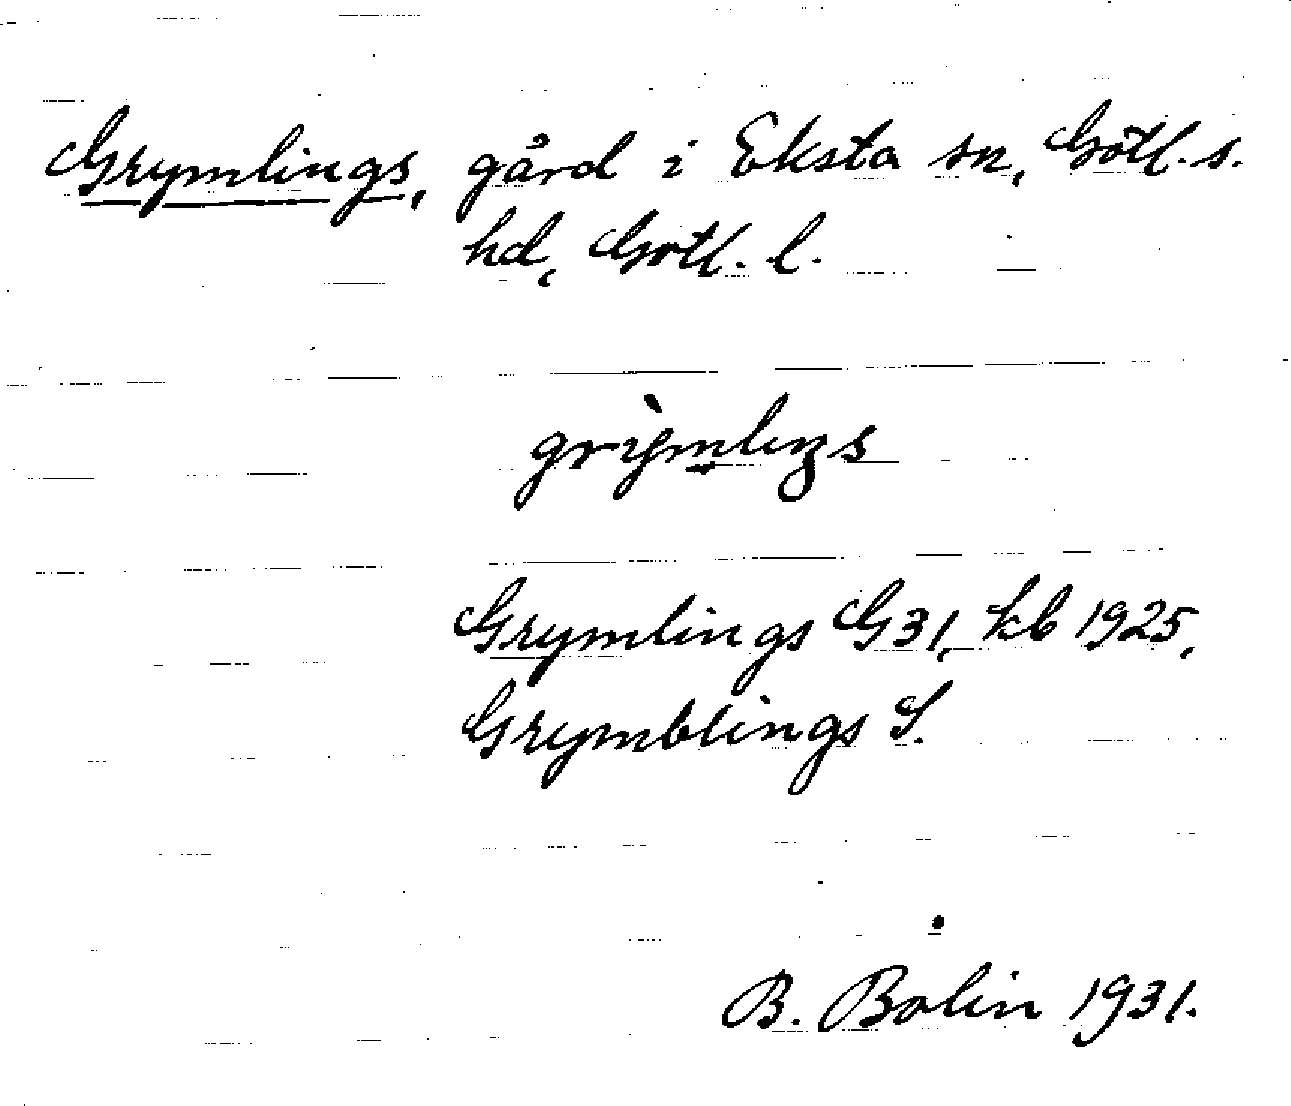 Grymlings, gård i Eksta sn, Gotl. s.
hd, Gotl. l.
grỳmlıŋs
Grymlings G 31, kb 1925,
Grymblings S.
B. Bolin 1931.